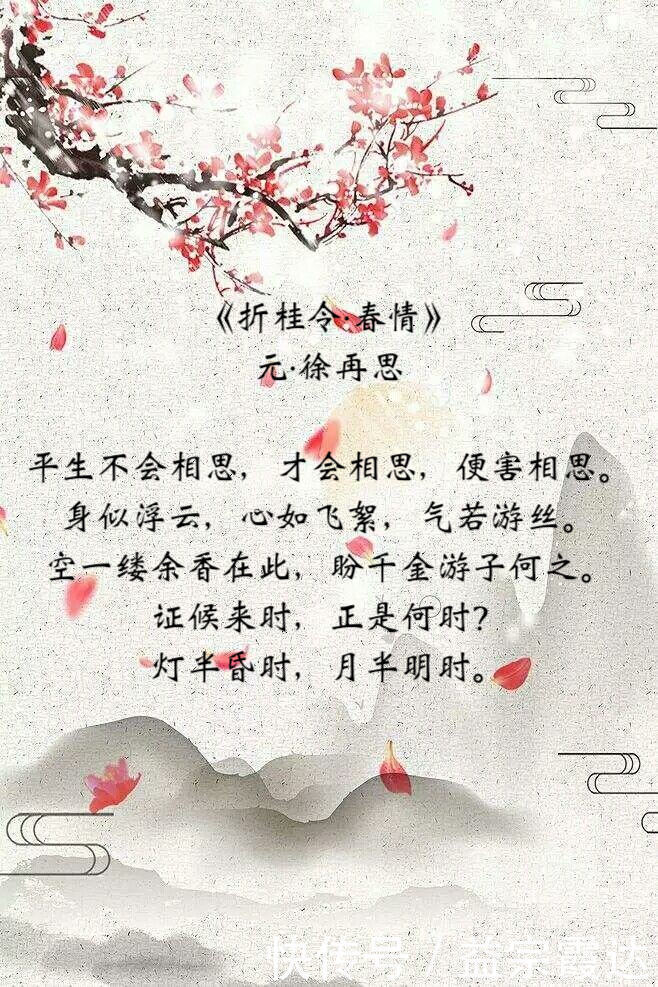 《折桂令·春情》
元·徐再思
平生不会相思，才会相思，便害相思。
身似浮云，心如飞絮，气若游丝。
空一缕余香在此，盼千金游子何之。
证候来时，正是何时？
灯半昏时，月半明时。
快传号／益宗霞达